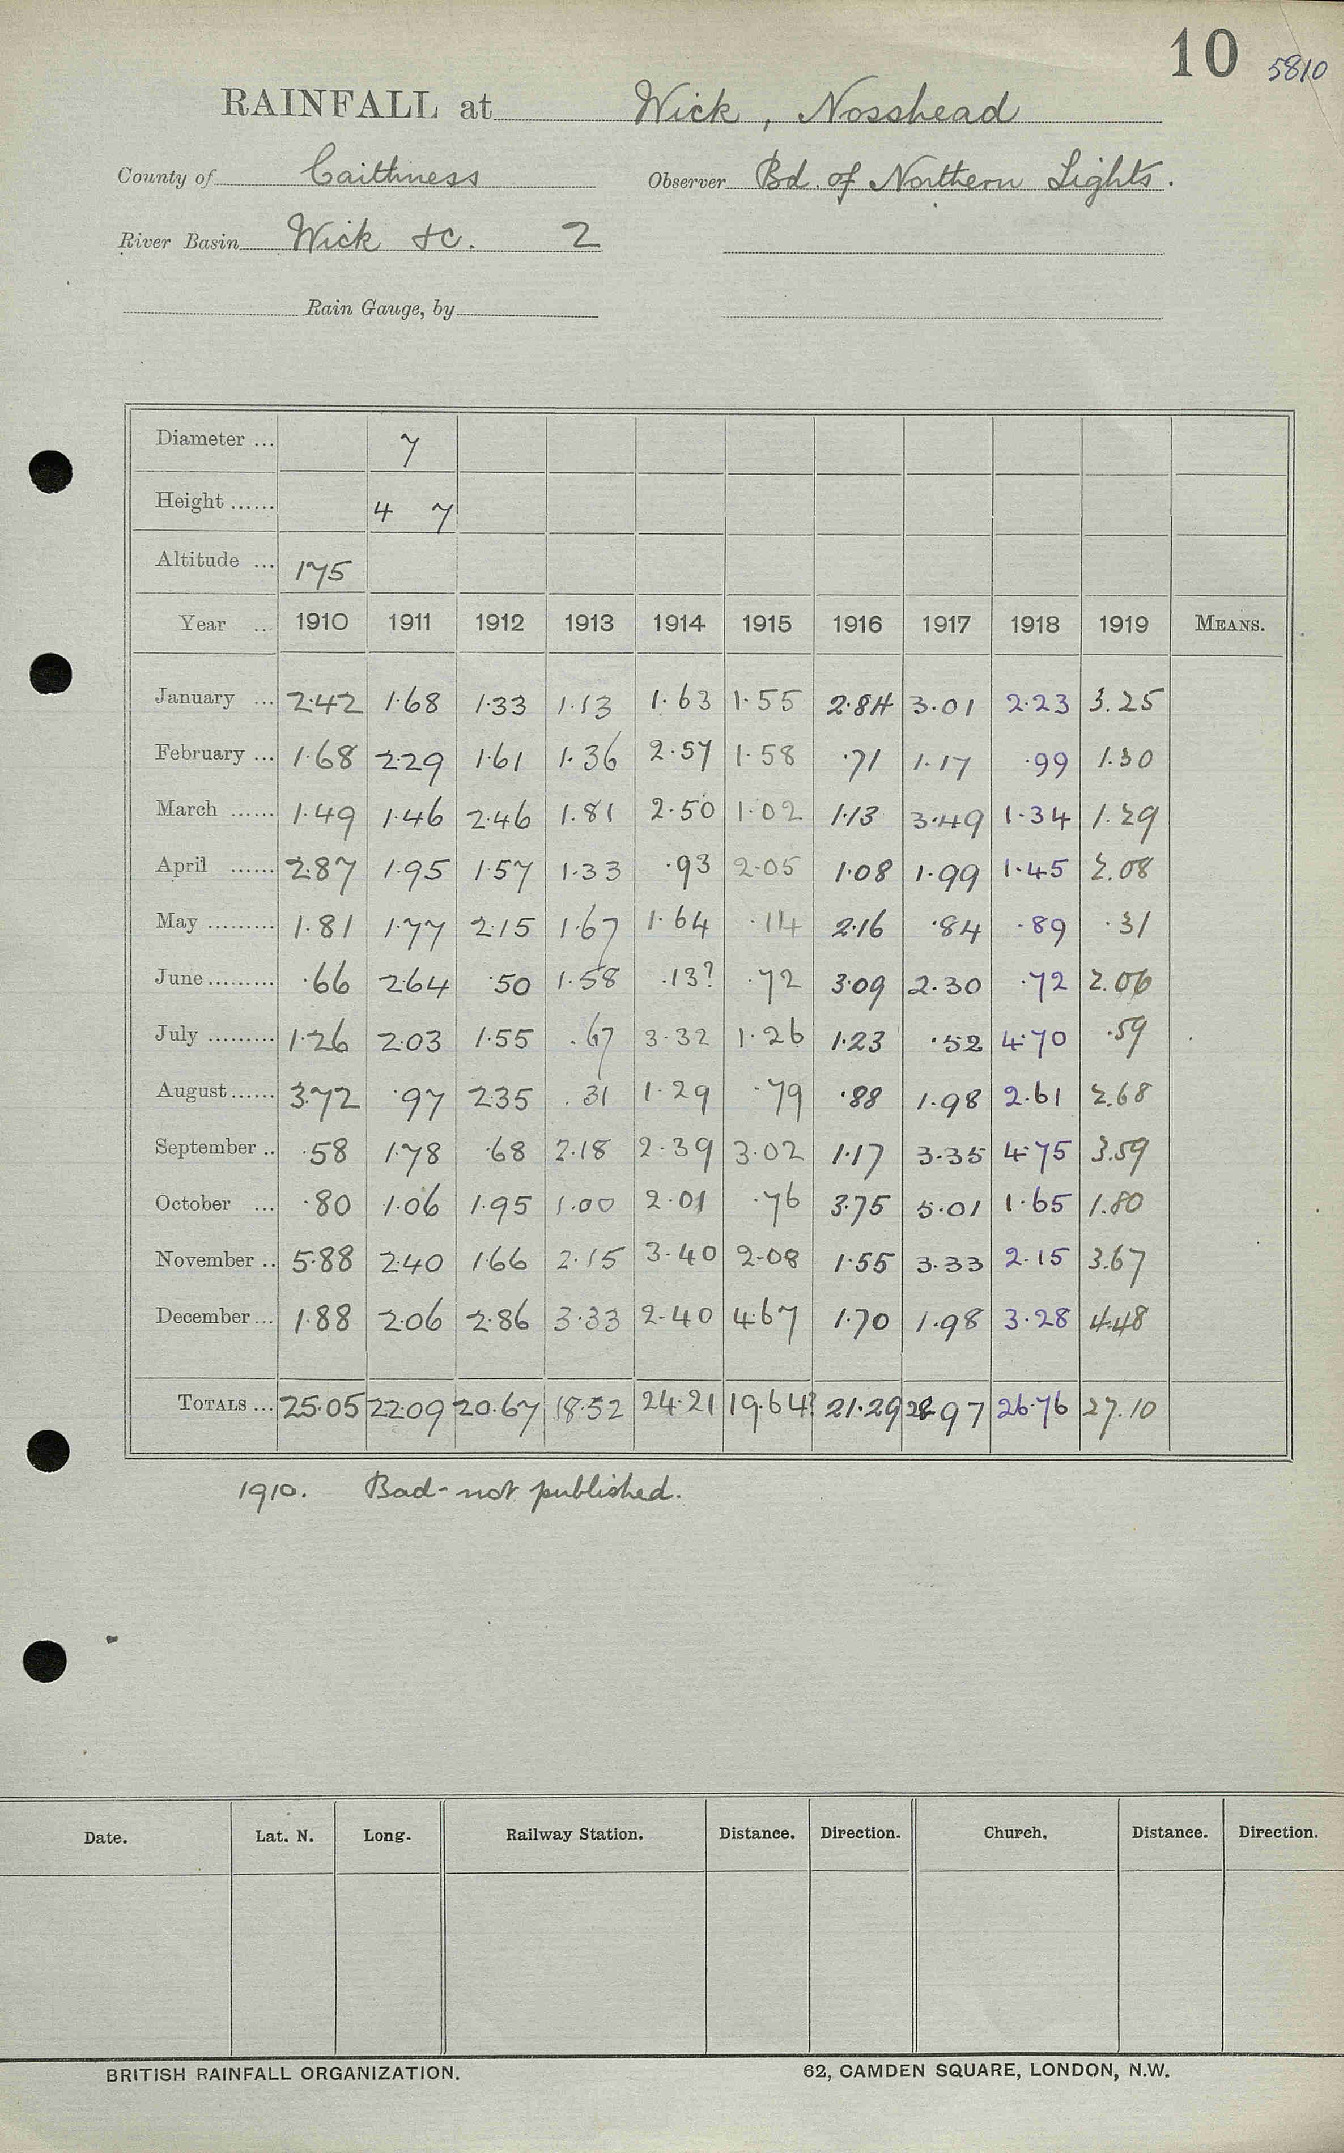 10 5810
RAINFALL at Wick, Nosshead
County of Caithness Observer Bd. of Northern Lights.
River Basin Wick &c. 2
Rain Gauge, by
Diameter ... 7
Height ...... 4 7
Altitude ... 175
Year ... 1910 1911 1912 1913 1914 1915 1916 1917 1918 1919 MEANS.
January ... 2.42 1.68 1.33 1.13 1.63 1.55 2.84 3.01 2.23 3.25
February ... 1.68 2.29 1.61 1.36 2.57 1.58 .71 1.17 .99 1.30
March ...... 1.49 1.46 2.46 1.81 2.50 1.02 1.13 3.49 1.34 1.29
April ...... 2.87 1.95 1.57 1.33 .93 2.05 1.08 1.99 1.45 2.08
May ......... 1.81 1.77 2.15 1.67 1.64 .14 2.16 .84 .89 .31
June ......... .66 2.64 .50 1.58 .13? .72 3.09 2.30 .72 2.06
July ......... 1.26 2.03 1.55 .67 3.32 1.26 1.23 .52 4.70 .59
August ...... 3.72 .97 2.35 .31 1.29 .79 .88 1.98 2.61 2.68
September .. .58 1.78 .68 2.18 2.39 3.02 1.17 3.35 4.75 3.59
October ... .80 1.06 1.95 1.00 2.01 .76 3.75 5.01 1.65 1.80
November .. 5.88 2.40 1.66 2.15 3.40 2.08 1.55 3.33 2.15 3.67
December ... 1.88 2.06 2.86 3.33 2.40 4.67 1.70 1.98 3.28 4.48
TOTALS ... 25.05 22.09 20.67 18.52 24.21 19.64? 21.29 28.97 26.76 27.10
1910. Bad - not published.
Date. Lat. N. Long. Railway Station. Distance. Direction. Church. Distance. Direction.
BRITISH RAINFALL ORGANIZATION. 62, CAMDEN SQUARE, LONDON, N.W.